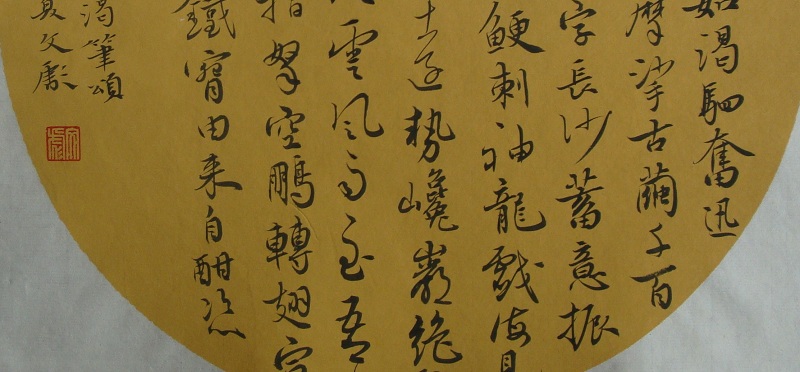 如渴驷奮迅
摩挲古繭千百
字長沙蓄意振
鯁刺神龍戲海
士遊勢巉巖絶
雲風雨奔
指拏空鵬轉翅
鐵甯由来自酣恣
渴筆頌
文彪